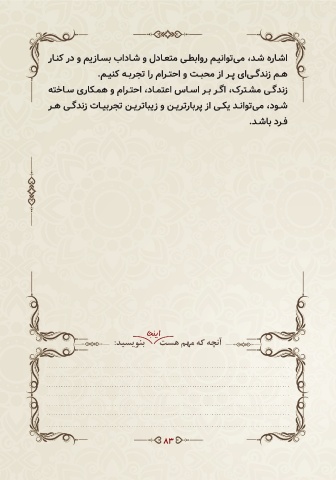 اشاره شد، می‌توانیم روابطی متعادل و شاداب بسازیم و در کنار
هم زندگی‌ای پر از محبت و احترام را تجربه کنیم.
زندگی مشترک، اگر بر اساس اعتماد، احترام و همکاری ساخته
شود، می‌تواند یکی از پربارترین و زیباترین تجربیات زندگی هر
فرد باشد.
آنچه که مهم هست اینجا بنویسید:
۸۳